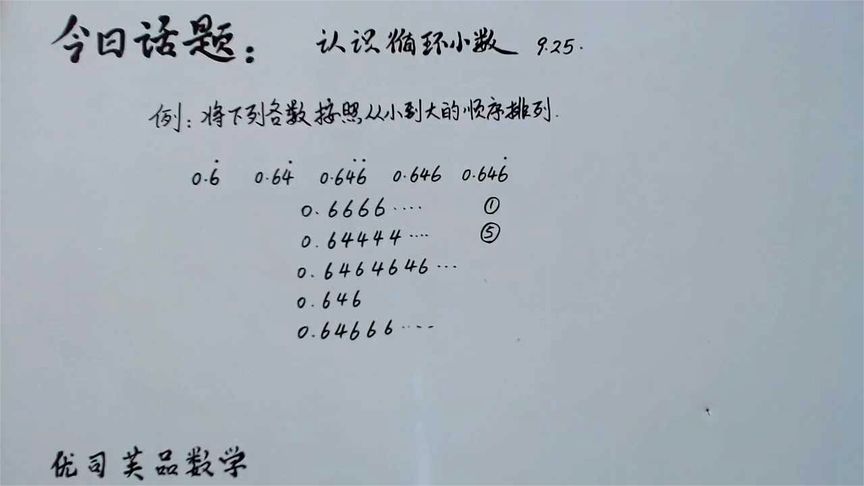 今日话题： 认识循环小数 9.25.
例：将下列各数按照从小到大的顺序排列.
0.6̇ 0.64̇ 0.64̇6̇ 0.646 0.646̇
0.6666···· ①
0.64444···· ⑤
0.6464646···
0.646
0.64666····
优司芙品数学